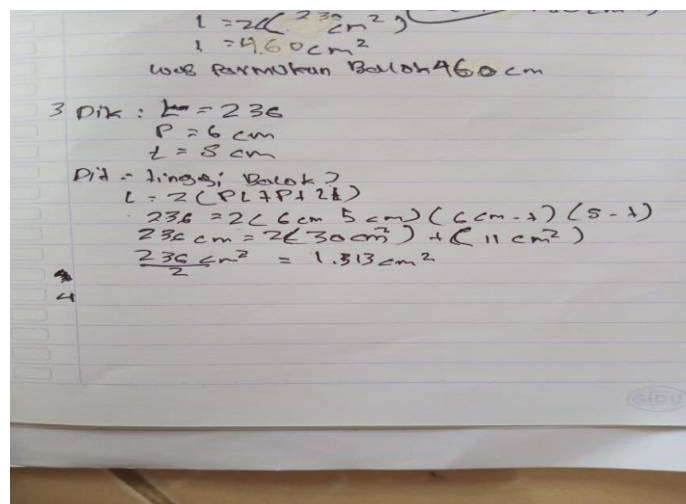 L = 2(230 cm²)
L = 460 cm²
Luas Permukan Balok 460 cm
3 Dik : L = 236
P = 6 cm
l = 5 cm
Dit = tinggi Balok?
L = 2(PL+Pt+Lt)
236 = 2(6cm 5cm)(6cm-t)(5-t)
236 cm = 2(30cm²)+(11cm²)
236 cm² = 1.313 cm²
2
4
SIDU